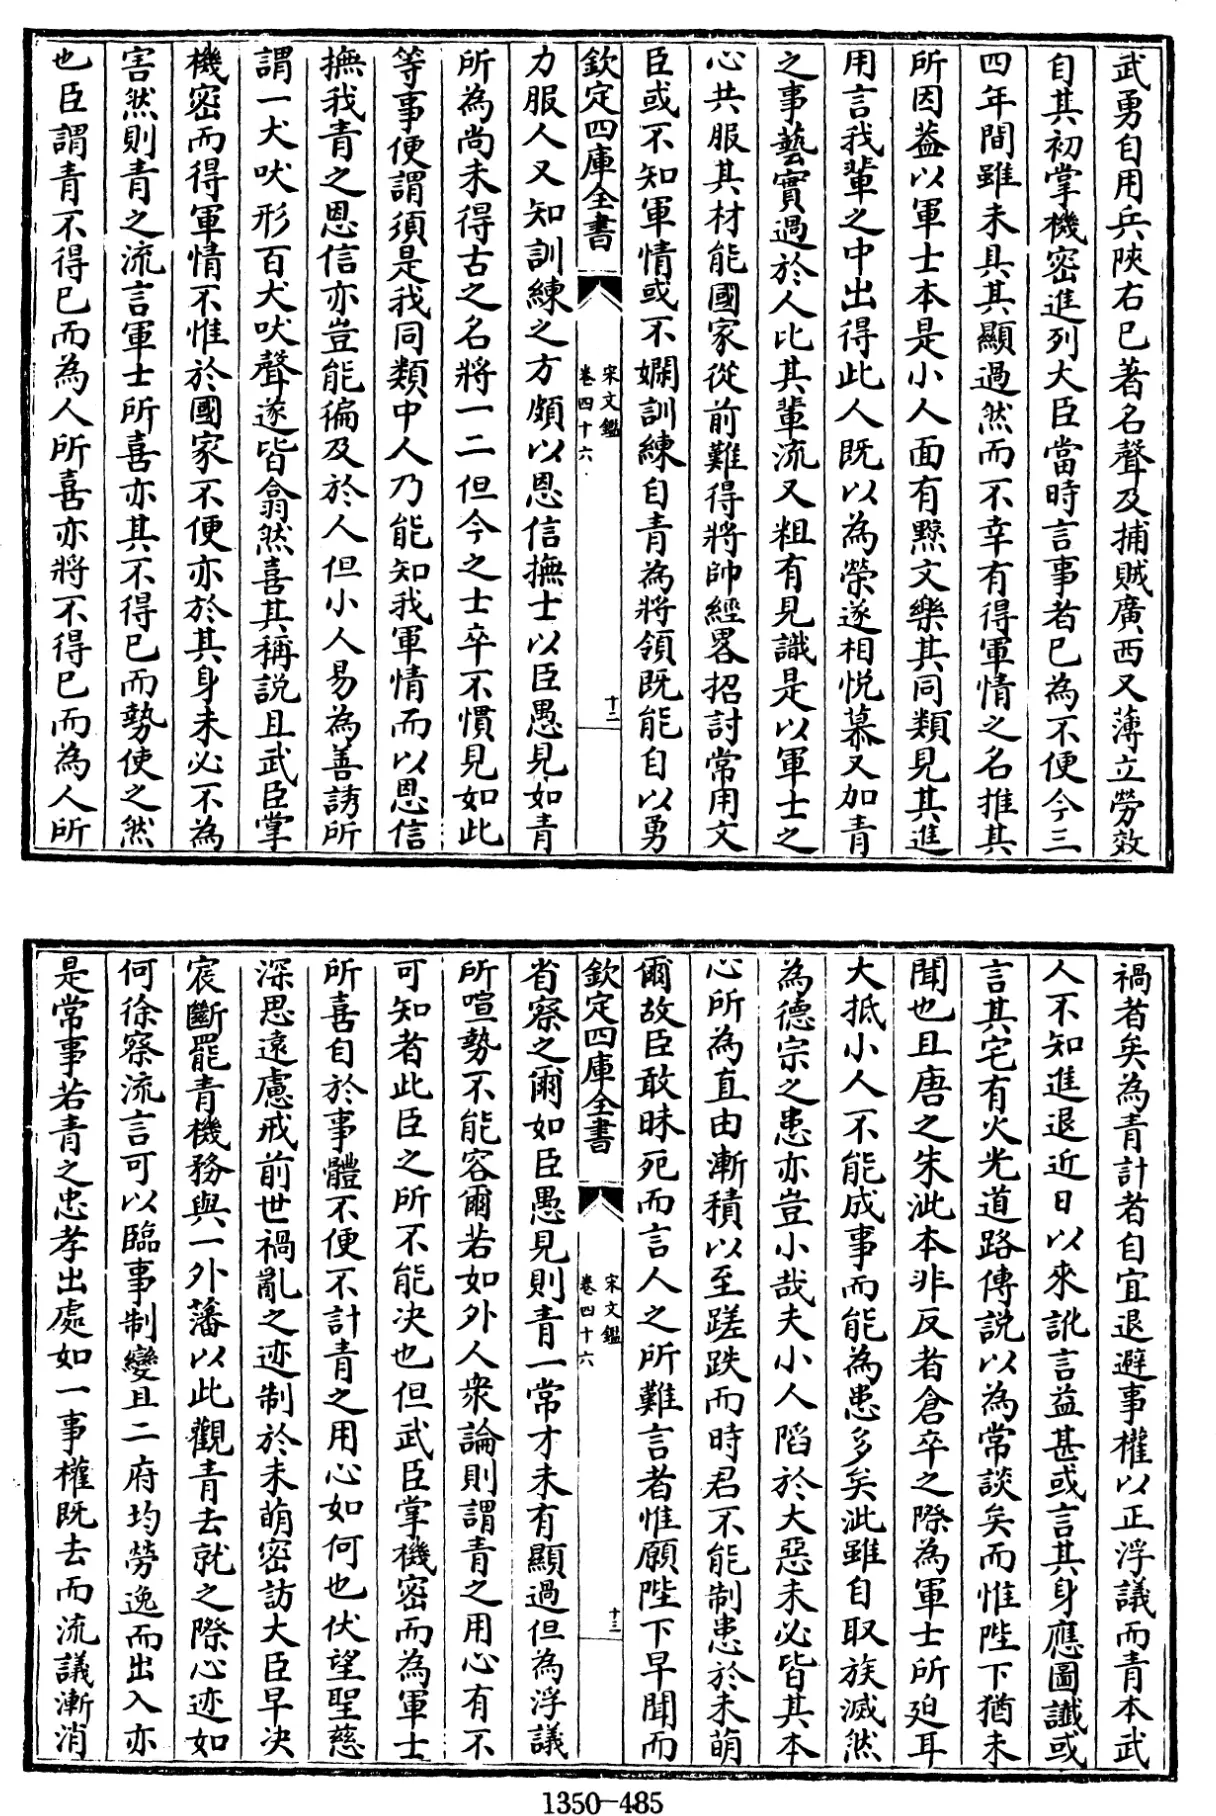 武勇自用兵陜右已著名聲及捕賊廣西又薄立勞效
自其初掌機密進列大臣當時言事者已為不便今三
四年間雖未具其顯過然而不幸有得軍情之名推其
所因葢以軍士本是小人面有黥文樂其同類見其進
用言我輩之中出得此人既以為榮遂相悅慕又加青
之事藝實過於人比其輩流又粗有見識是以軍士之
心共服其材能國家從前難得將帥經畧招討常用文
臣或不知軍情或不嫻訓練自青為將領既能自以勇
欽定四庫全書
宋文鑑
卷四十六
十二
力服人又知訓練之方頗以恩信撫士以臣愚見如青
所為尚未得古之名將一二但今之士卒不慣見如此
等事便謂須是我同類中人乃能知我軍情而以恩信
撫我青之恩信亦豈能徧及於人但小人易為善誘所
謂一犬吠形百犬吠聲遂皆翕然喜其稱說且武臣掌
機密而得軍情不惟於國家不便亦於其身未必不為
害然則青之流言軍士所喜亦其不得已而勢使之然
也臣謂青不得已而為人所喜亦將不得已而為人所
禍者矣為青計者自宜退避事權以正浮議而青本武
人不知進退近日以來訛言益甚或言其身應圖讖或
言其宅有火光道路傳說以為常談矣而惟陛下猶未
聞也且唐之朱泚本非反者倉卒之際為軍士所迫耳
大抵小人不能成事而能為患多矣泚雖自取族滅然
為德宗之患亦豈小哉夫小人陷於大惡未必皆其本
心所為直由漸積以至蹉跌而時君不能制患於未萌
爾故臣敢昧死而言人之所難言者惟願陛下早聞而
欽定四庫全書
宋文鑑
卷四十六
十三
省察之爾如臣愚見則青一常才未有顯過但為浮議
所喧勢不能容爾若如外人衆論則謂青之用心有不
可知者此臣之所不能决也但武臣掌機密而為軍士
所喜自於事體不便不計青之用心如何也伏望聖慈
深思遠慮戒前世禍亂之迹制於未萌密訪大臣早决
宸斷罷青機務與一外藩以此觀青去就之際心迹如
何徐察流言可以臨事制變且二府均勞逸而出入亦
是常事若青之忠孝出處如一事權既去而流議漸消
1350-485